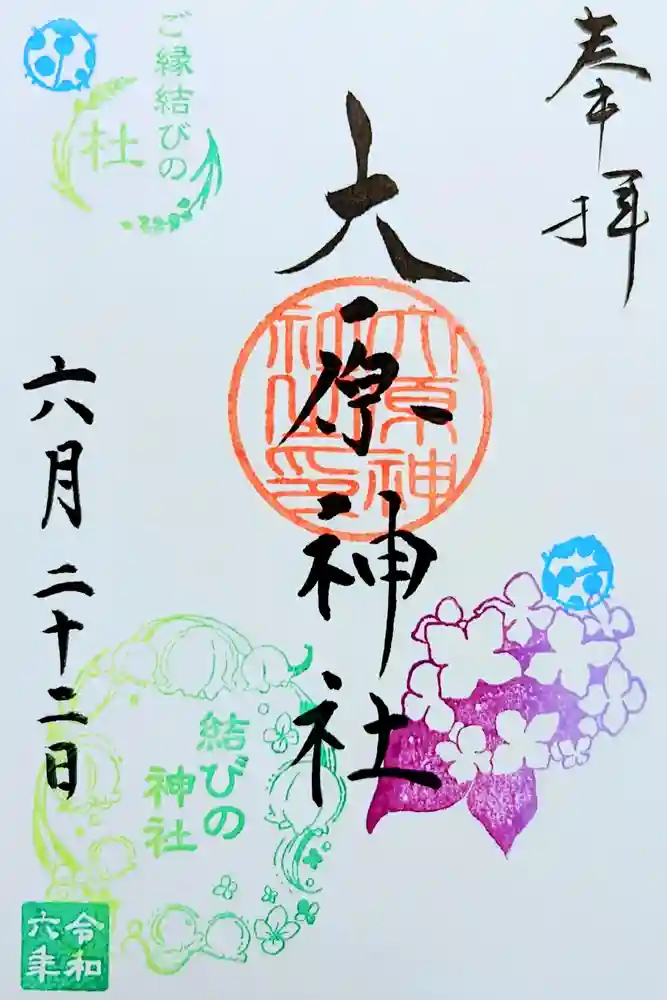 奉拝
大原神社
大原神社之印
六月二十二日
ご縁結びの
杜
結びの
神社
令和
六年